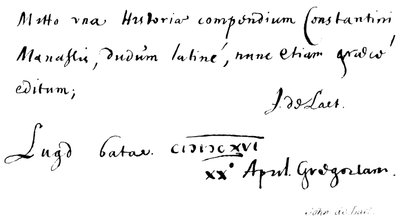 Mitto una Historiæ compendium Constantini
Manassis, dudùm latinè, nunc etiam græcè
editum;
J. de Laet.
Lugd batav. CIƆIƆCXVI
XX° April. Gregoriam.